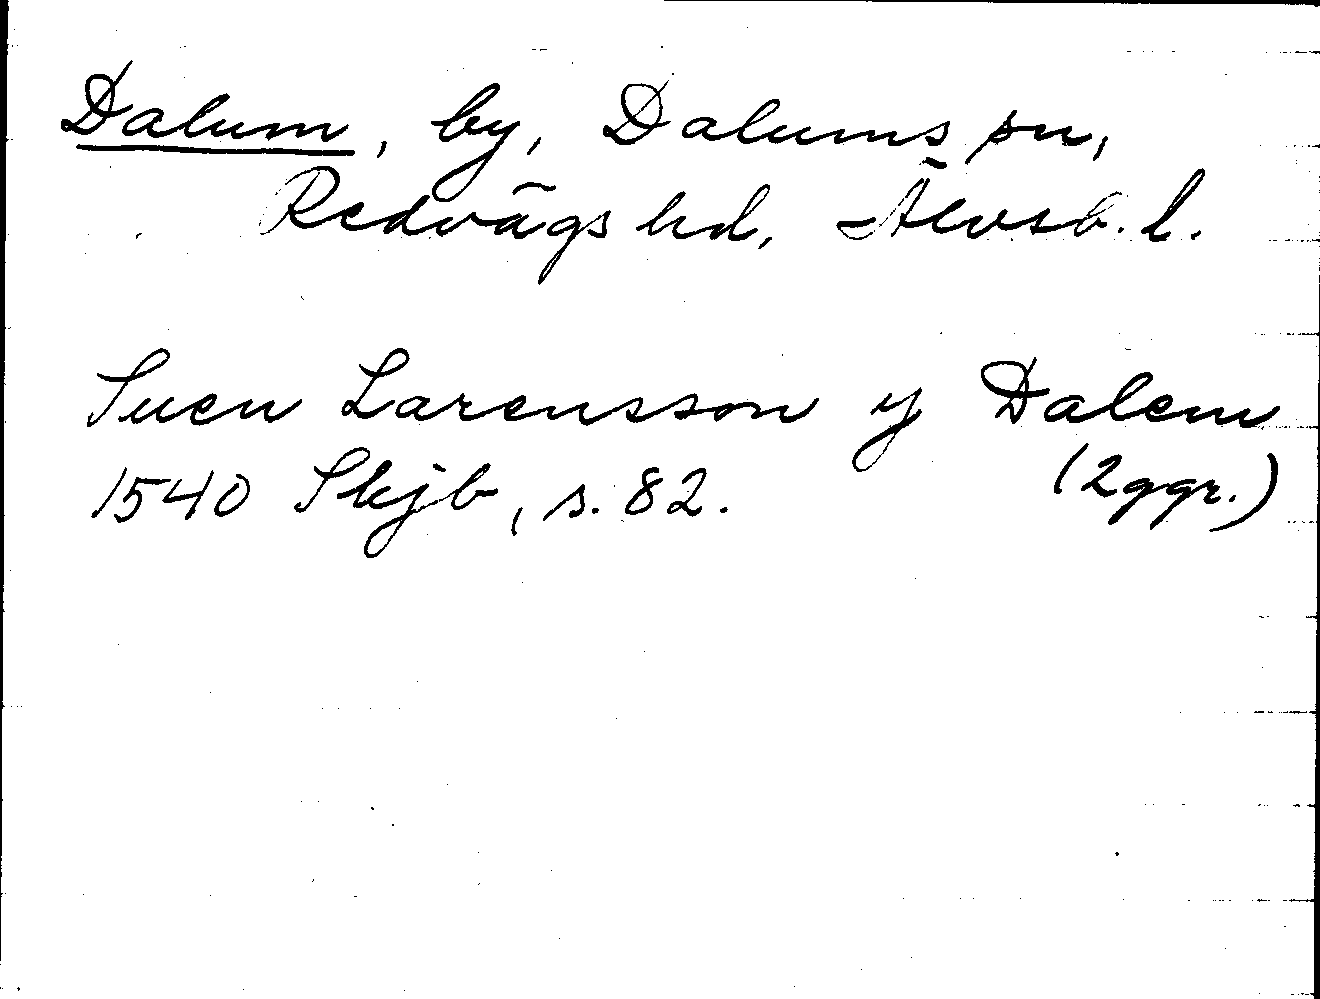 Dalum, by, Dalums sn,
Redvägs hd, Älvsb. l.
Suen Larensson y Dalem
1540 Skjb, s. 82. (2ggr.)